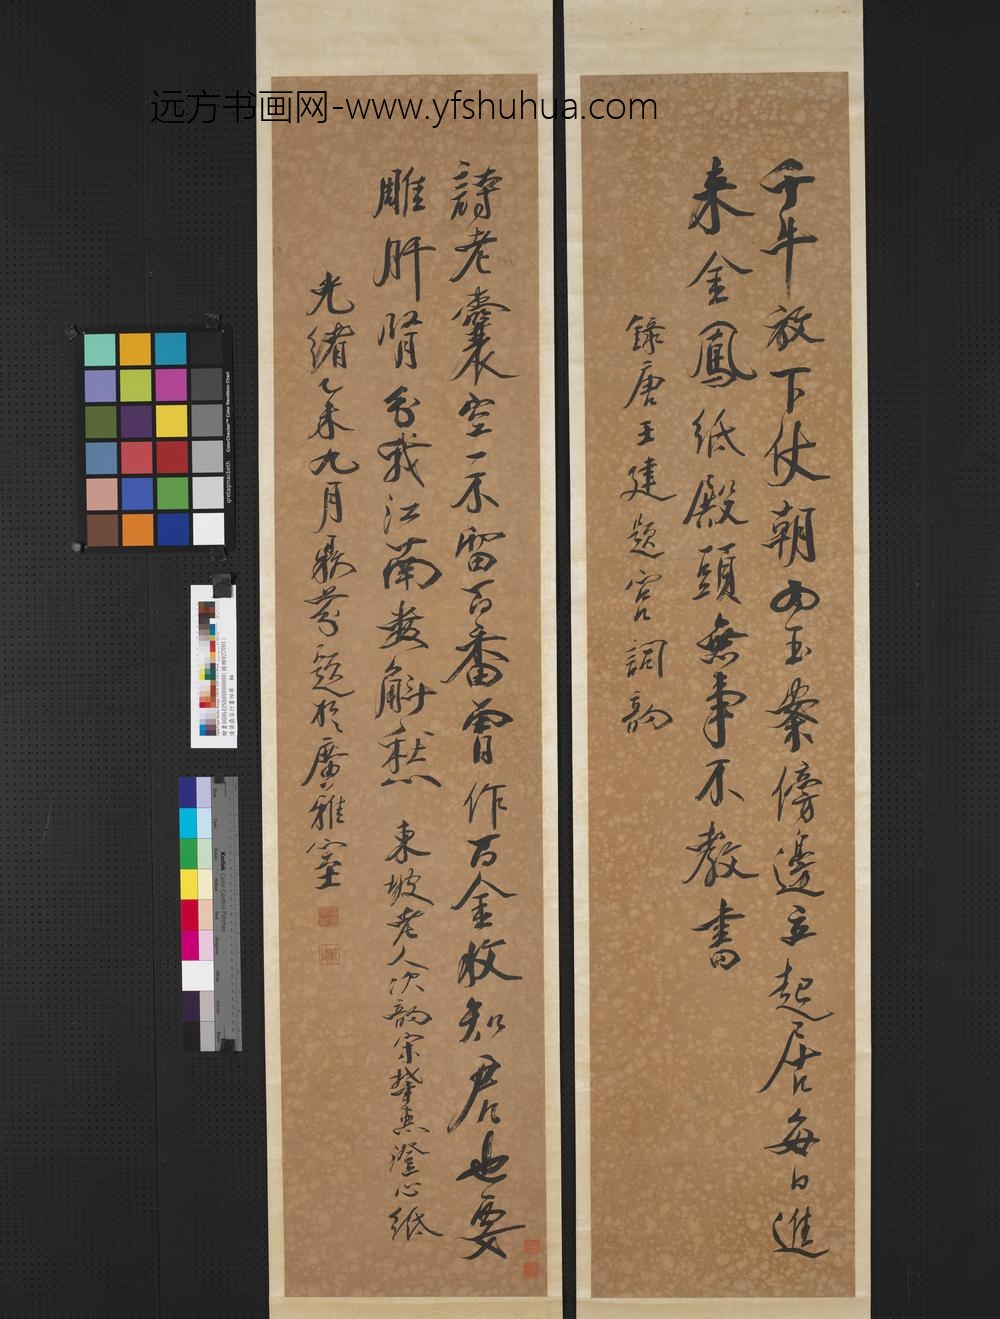 远方书画网-www.yfshuhua.com
千牛放下仗朝玉案傍邊立起居每日進
来金鳳紙殿頭無事不教書
錄唐王建題宮詞韵
詩老囊空一不留百番曾作百金收知君也要
雕肝腎分我江南數斛愁 東坡老人次韵宋肇惠澄心紙
光緒乙未九月鼎芬題於廣雅室
ColorChecker™ Color Rendition Chart
gretagmacbeth
Kodak